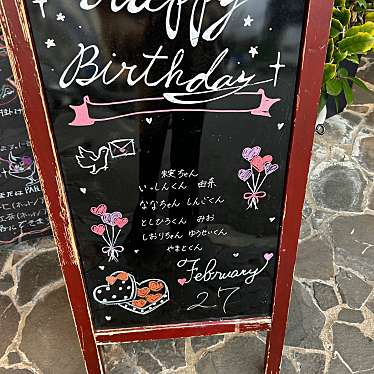 Happy
Birthday
いっしんくん 由奈
ななちゃん しんごくん
としひろくん みお
しおりちゃん ゆうせいくん
やまとくん
February
27